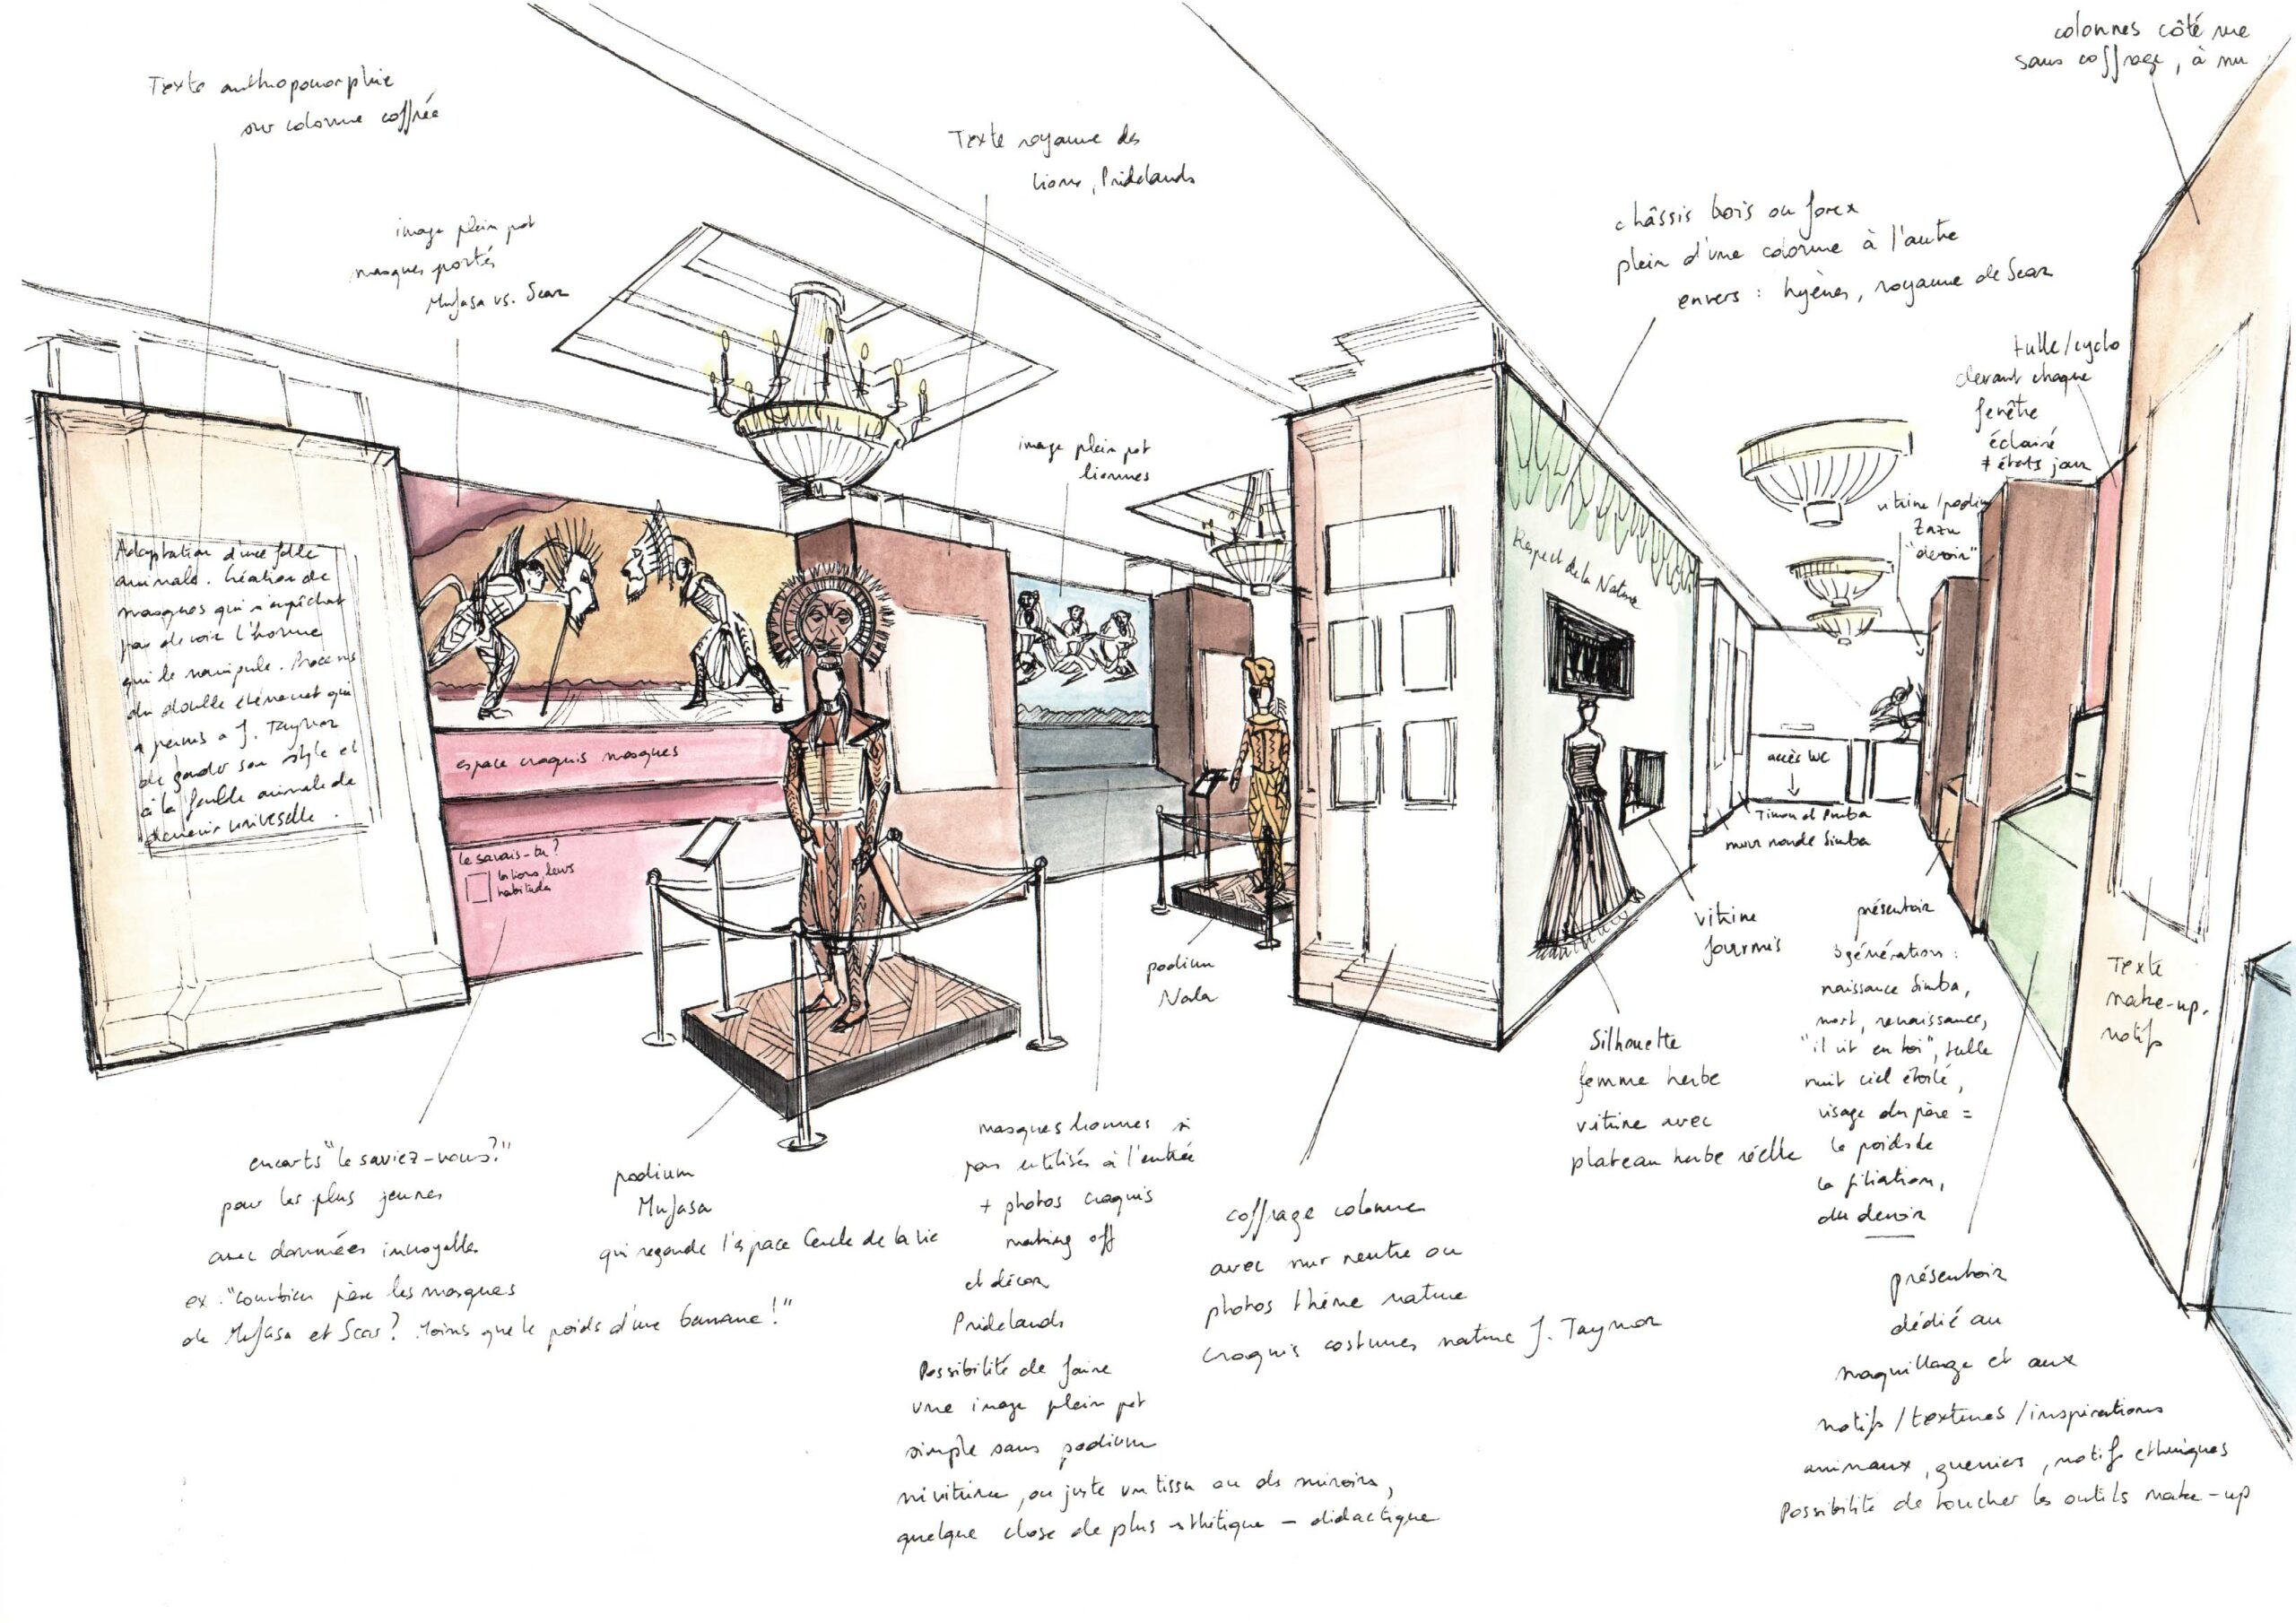 Texte anthropomorphie
sur colonne coffrée
image plein pot
masques portés
Mufasa vs. Scar
Texte royaume des
lions, Pridelands
image plein pot
lionnes
châssis bois ou forex
plein d'une colonne à l'autre
envers : hyènes, royaume de Scar
colonnes côté rue
sans coffrage, à nu
tulle/cyclo
devant chaque
fenêtre
éclairé
≠ états jour
vitrine/podium
Zazu
"devoir"
Adaptation d'une fable
animale. Création de
masques qui n'empêchat
pas de voir l'homme
qui le manipule. Process
du double évènement qui
a permis a J. Taymor
de garder son style et
à la fable animale de
devenir universelle.
espace croquis masques
le savais-tu?
les lions, leurs
habitudes
Respect de la Nature
accès WC
Timon et Pumba
mur ronde Simba
podium
Nala
vitrine
fourmis
Silhouette
femme herbe
vitrine avec
plateau herbe réelle
présentoir
3 génération :
naissance Simba,
mort, renaissance,
"il vit en toi", tulle
nuit ciel étoilé,
visage du père =
le poids de
la filiation,
du devoir
Texte
make-up.
motifs
encarts "le saviez-vous?"
pour les plus jeunes
avec données incroyables
ex. "combien pèse les masques
de Mufasa et Scar? Moins que le poids d'une banane!"
podium
Mufasa
qui regarde l'espace Cercle de la vie
masques lionnes si
pas utilisés à l'entrée
+ photos croquis
making off
et décor
Pridelands
Possibilité de faire
une image plein pot
simple sans podium
ni vitrine, ou juste un tissu ou des miroirs,
quelque chose de plus esthétique - didactique
coffrage colonne
avec mur neutre ou
photos thème nature
croquis costumes nature J. Taymor
présentoir
dédié au
maquillage et aux
motifs/textures/inspirations
animaux, guerriers, motifs ethniques
Possibilité de toucher les outils make-up